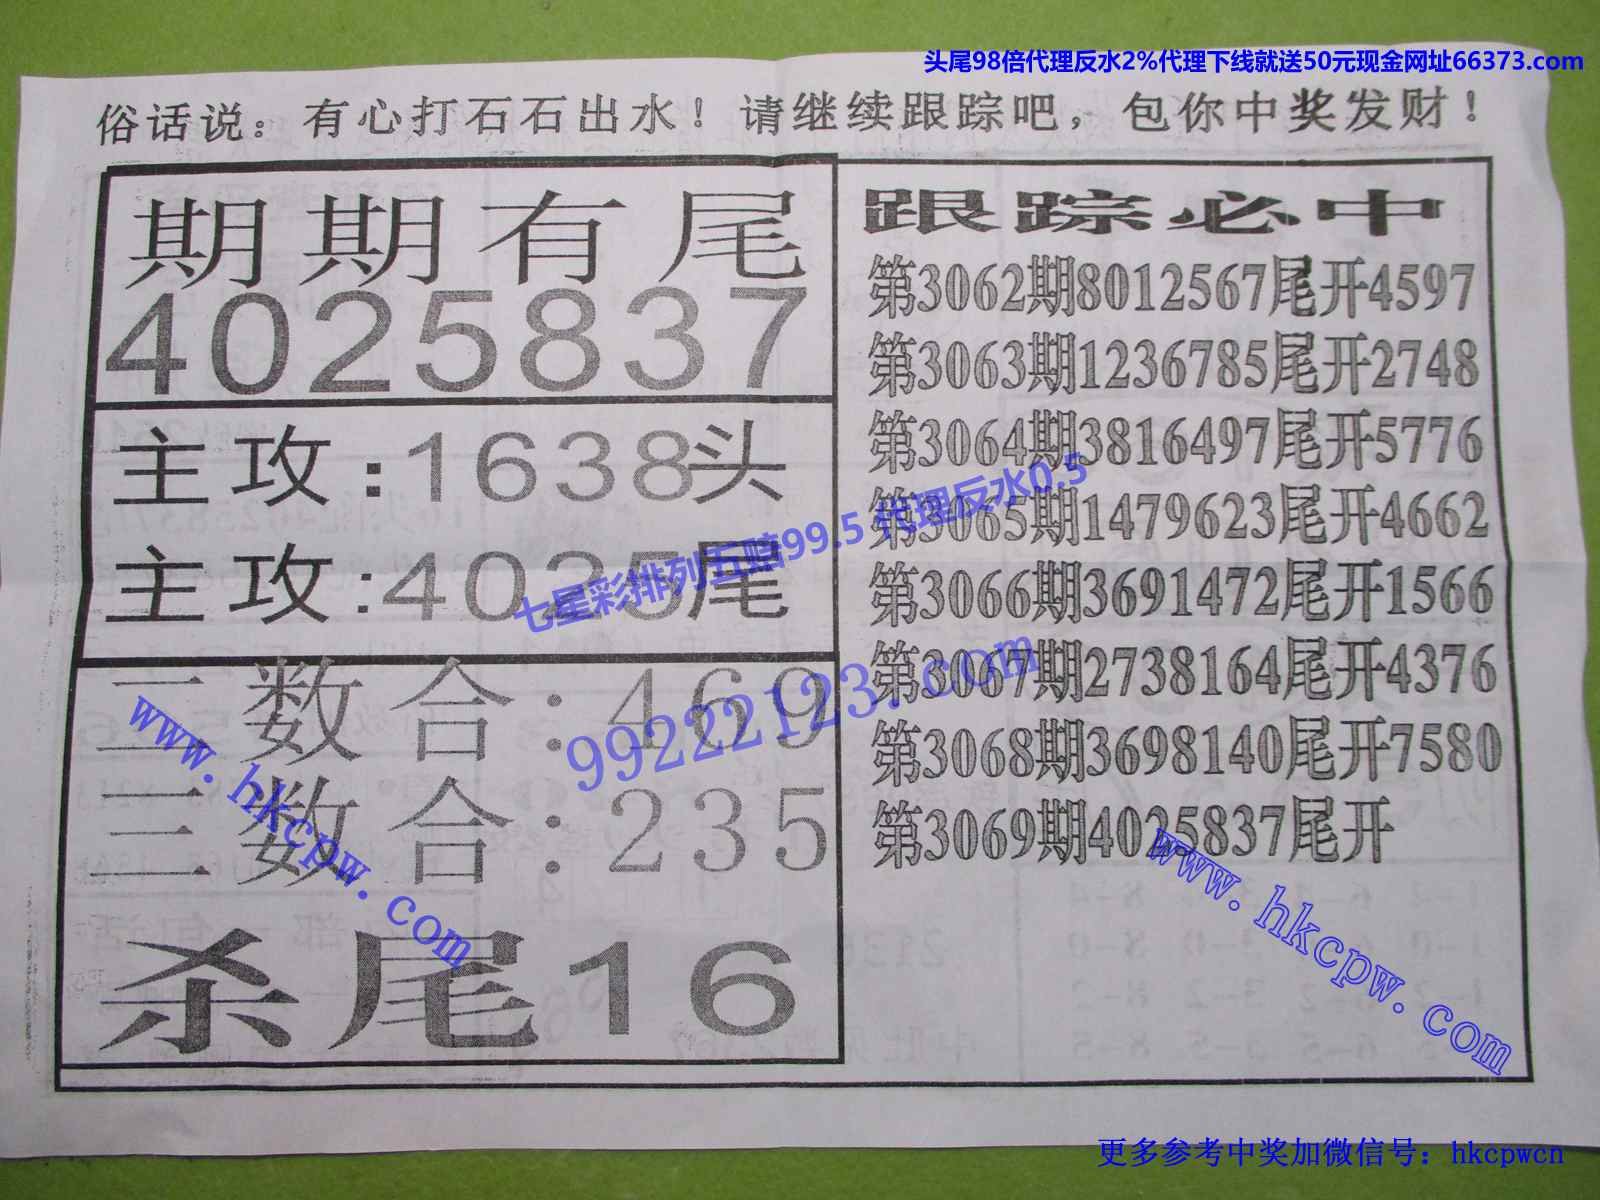 头尾98倍代理反水2%代理下线就送50元现金网址66373.com
俗话说：有心打石石出水！请继续跟踪吧，包你中奖发财！
期期有尾
4025837
主攻:1638头
主攻:4025尾
二数合:469
三数合:235
杀尾16
跟踪必中
第3062期8012567尾开4597
第3063期1236785尾开2748
第3064期3816497尾开5776
第3065期1479623尾开4662
第3066期3691472尾开1566
第3067期2738164尾开4376
第3068期3698140尾开7580
第3069期4025837尾开
七星彩排列五赔99.5 代理反水0.5
99222123.com
www.hkcpw.com
www.hkcpw.com
更多参考中奖加微信号：hkcpwcn